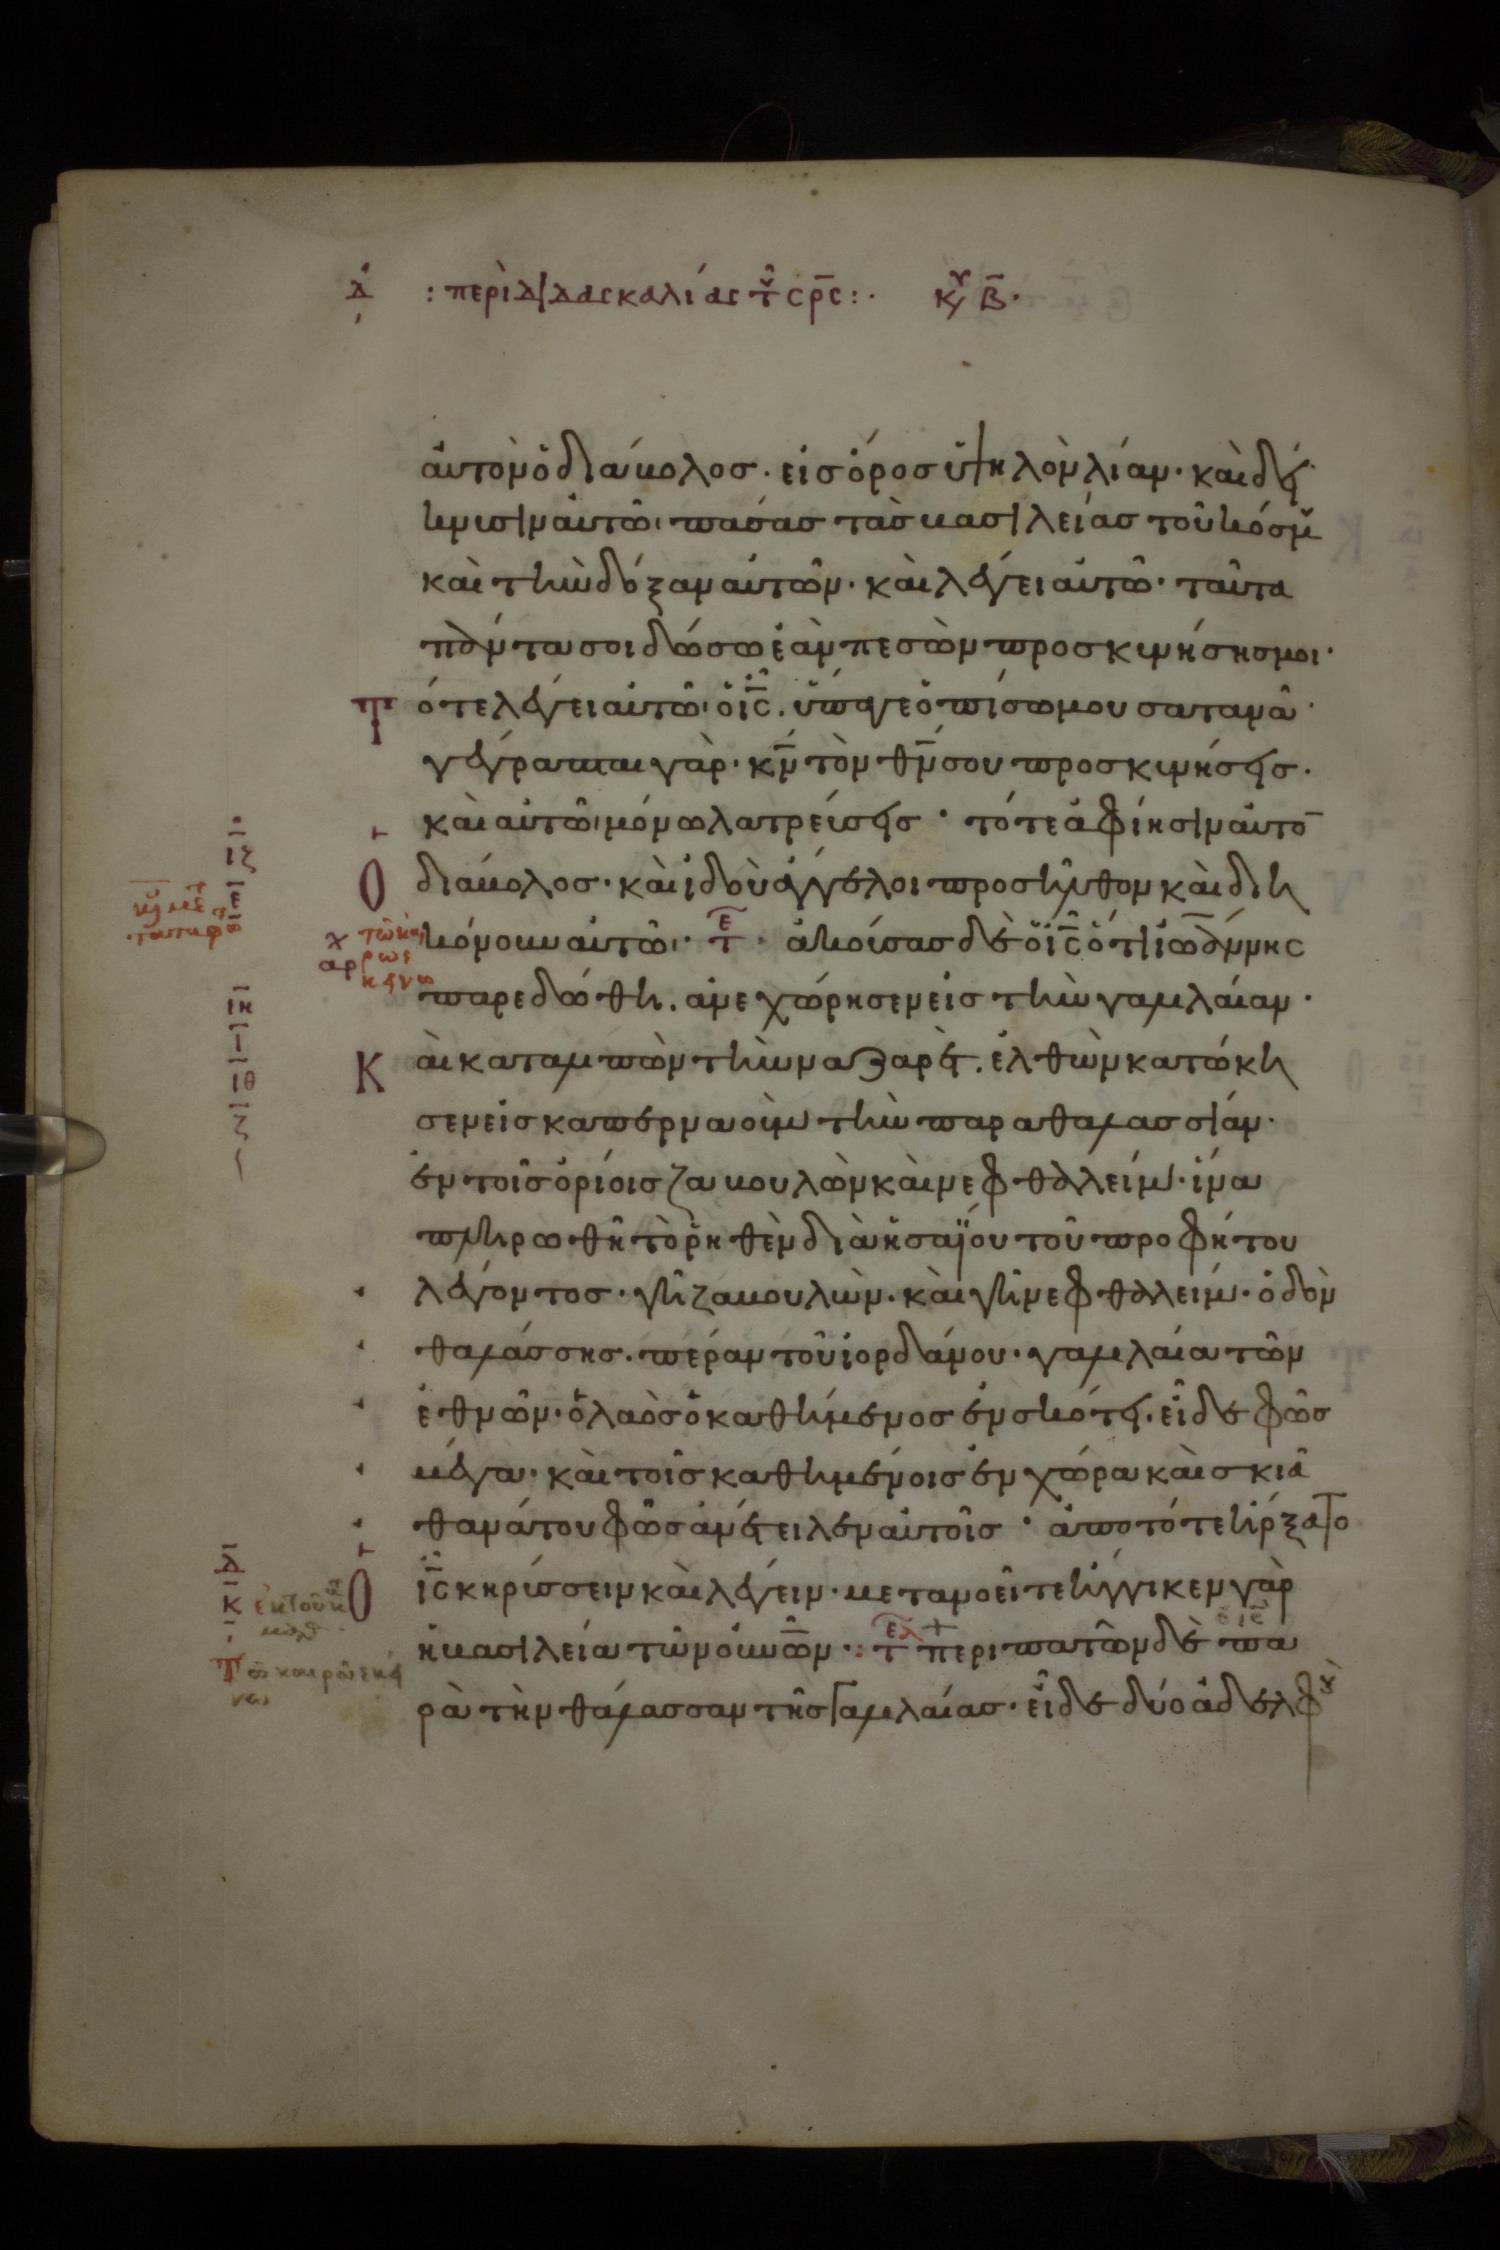 Δ : περὶ διδασκαλίας τοῦ σρς : κυ β
αὐτὸν ὁ διάβολος. εἰς ὄρος ὑψηλὸν λίαν. καὶ δεί
κνυσιν αὐτῶ πάσας τὰς βασιλείας τοῦ κόσμου
καὶ τὴν δόξαν αὐτῶν. καὶ λέγει αὐτῶ. ταῦτα
πάντα σοι δώσω ἐὰν πεσὼν προσκυνήσης μοι.
Τότε λέγει αὐτῶ ὁ ις. ὕπαγε ὀπίσω μου σατανᾶ.
γέγραπται γὰρ. κν τὸν θν σου προσκυνήσεις.
καὶ αὐτῶ μόνω λατρεύσεις. τότε ἀφίησιν αὐτὸ
Ο διάβολος. καὶ ἰδοὺ ἄγγελοι προσῆλθον καὶ διη
κόνουν αὐτῶ. τε. ἀκούσας δὲ ὁ ις ὅτι ἰωάννης
παρεδόθη. ἀνεχώρησεν εἰς τὴν γαλιλαίαν.
Καὶ καταλιπὼν τὴν ναζαρέτ. ἐλθὼν κατώκη
σεν εἰς καπέρναουμ τὴν παραθαλασσίαν.
ἐν τοῖς ὁρίοις ζαβουλὼν καὶ νεφθαλείμ. ἵνα
πληρωθῆ τὸ ῥηθὲν διὰ ἠσαΐου τοῦ προφήτου
λέγοντος. γῆ ζαβουλὼν. καὶ γῆ νεφθαλείμ. ὁδὸν
θαλάσσης. πέραν τοῦ ἰορδάνου. γαλιλαία τῶν
ἐθνῶν. ὁ λαὸς ὁ καθήμενος ἐν σκότει. εἶδε φῶς
μέγα. καὶ τοῖς καθημένοις ἐν χώρα καὶ σκιᾶ
θανάτου φῶς ἀνέτειλεν αὐτοῖς. ἀπὸ τότε ἤρξατο
Ο ις κηρύσσειν καὶ λέγειν. μετανοεῖτε ἤγγικεν γὰρ
ἡ βασιλεία τῶν οὐνῶν. τε περιπατῶν δὲ ὁ ις πα
ρὰ τὴν θάλασσαν τῆς Γαλιλαίας. εἶδε δύο ἀδελφοὺ
ιζ
ε
ιη
ι
ιθ
ζ
Δ
κ